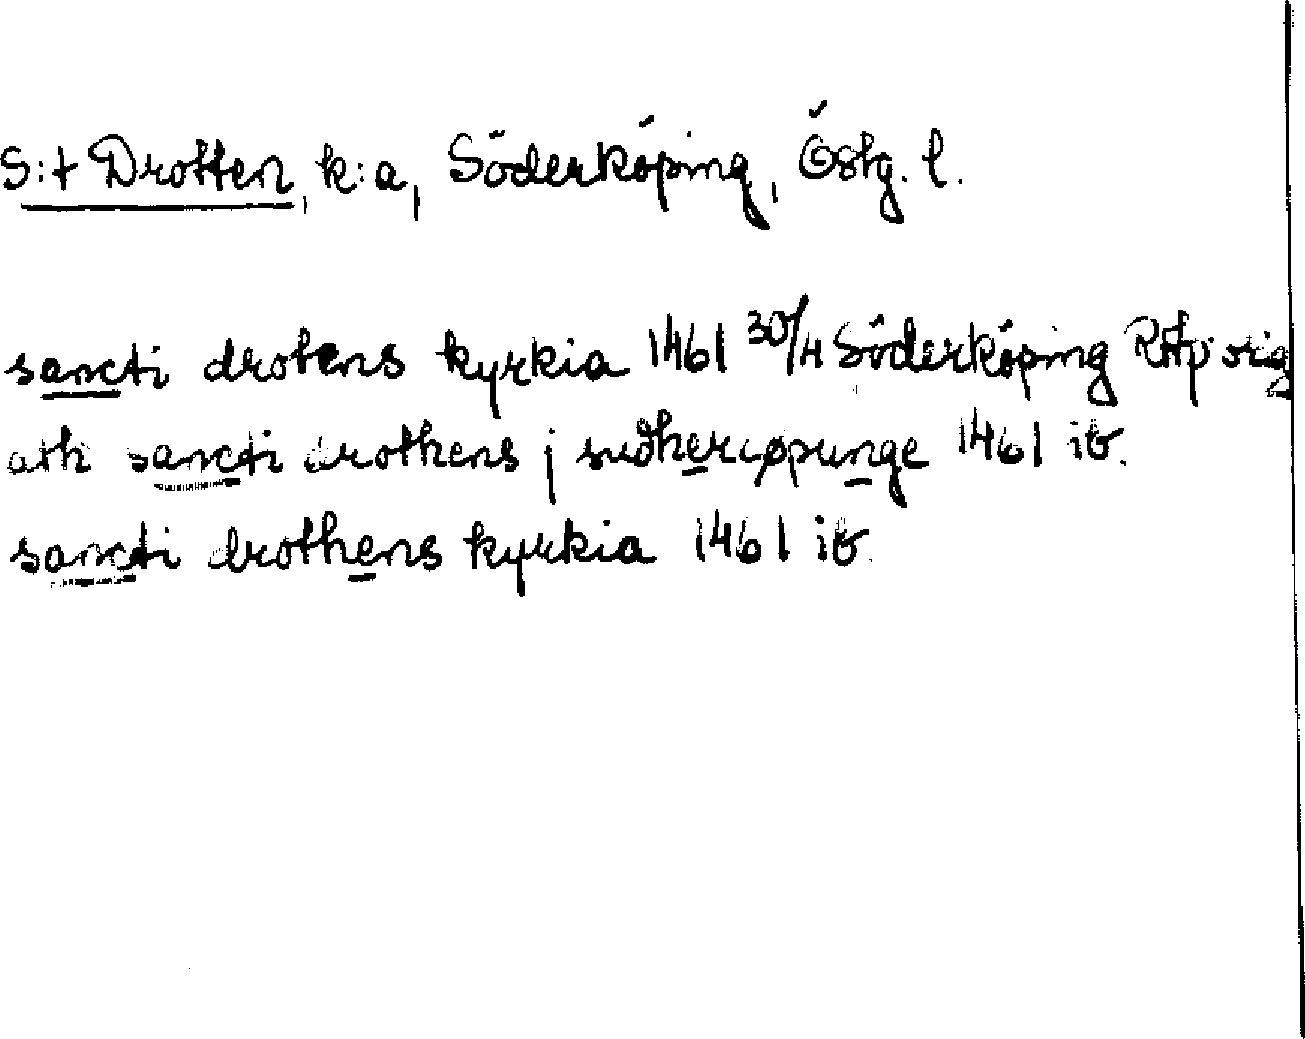 S:t Drotten, k:a, Söderköping, Östg. l.
sancti drotens kyrkia 1461 30/4 Söderköping RAp orig
ath sancti drothens j sudhercøpunge 1461 ib.
sancti drothens kyrkia 1461 ib.